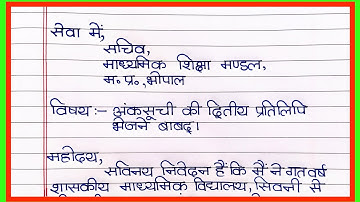 सेवा में,
सचिव,
माध्यमिक शिक्षा मण्डल,
म.प्र., भोपाल
विषय:- अंकसूची की द्वितीय प्रतिलिपि
भेजने बाबद्।
महोदय,
सविनय निवेदन हैं कि मैं ने गतवर्ष
शासकीय माध्यमिक विद्यालय, सिवनी से